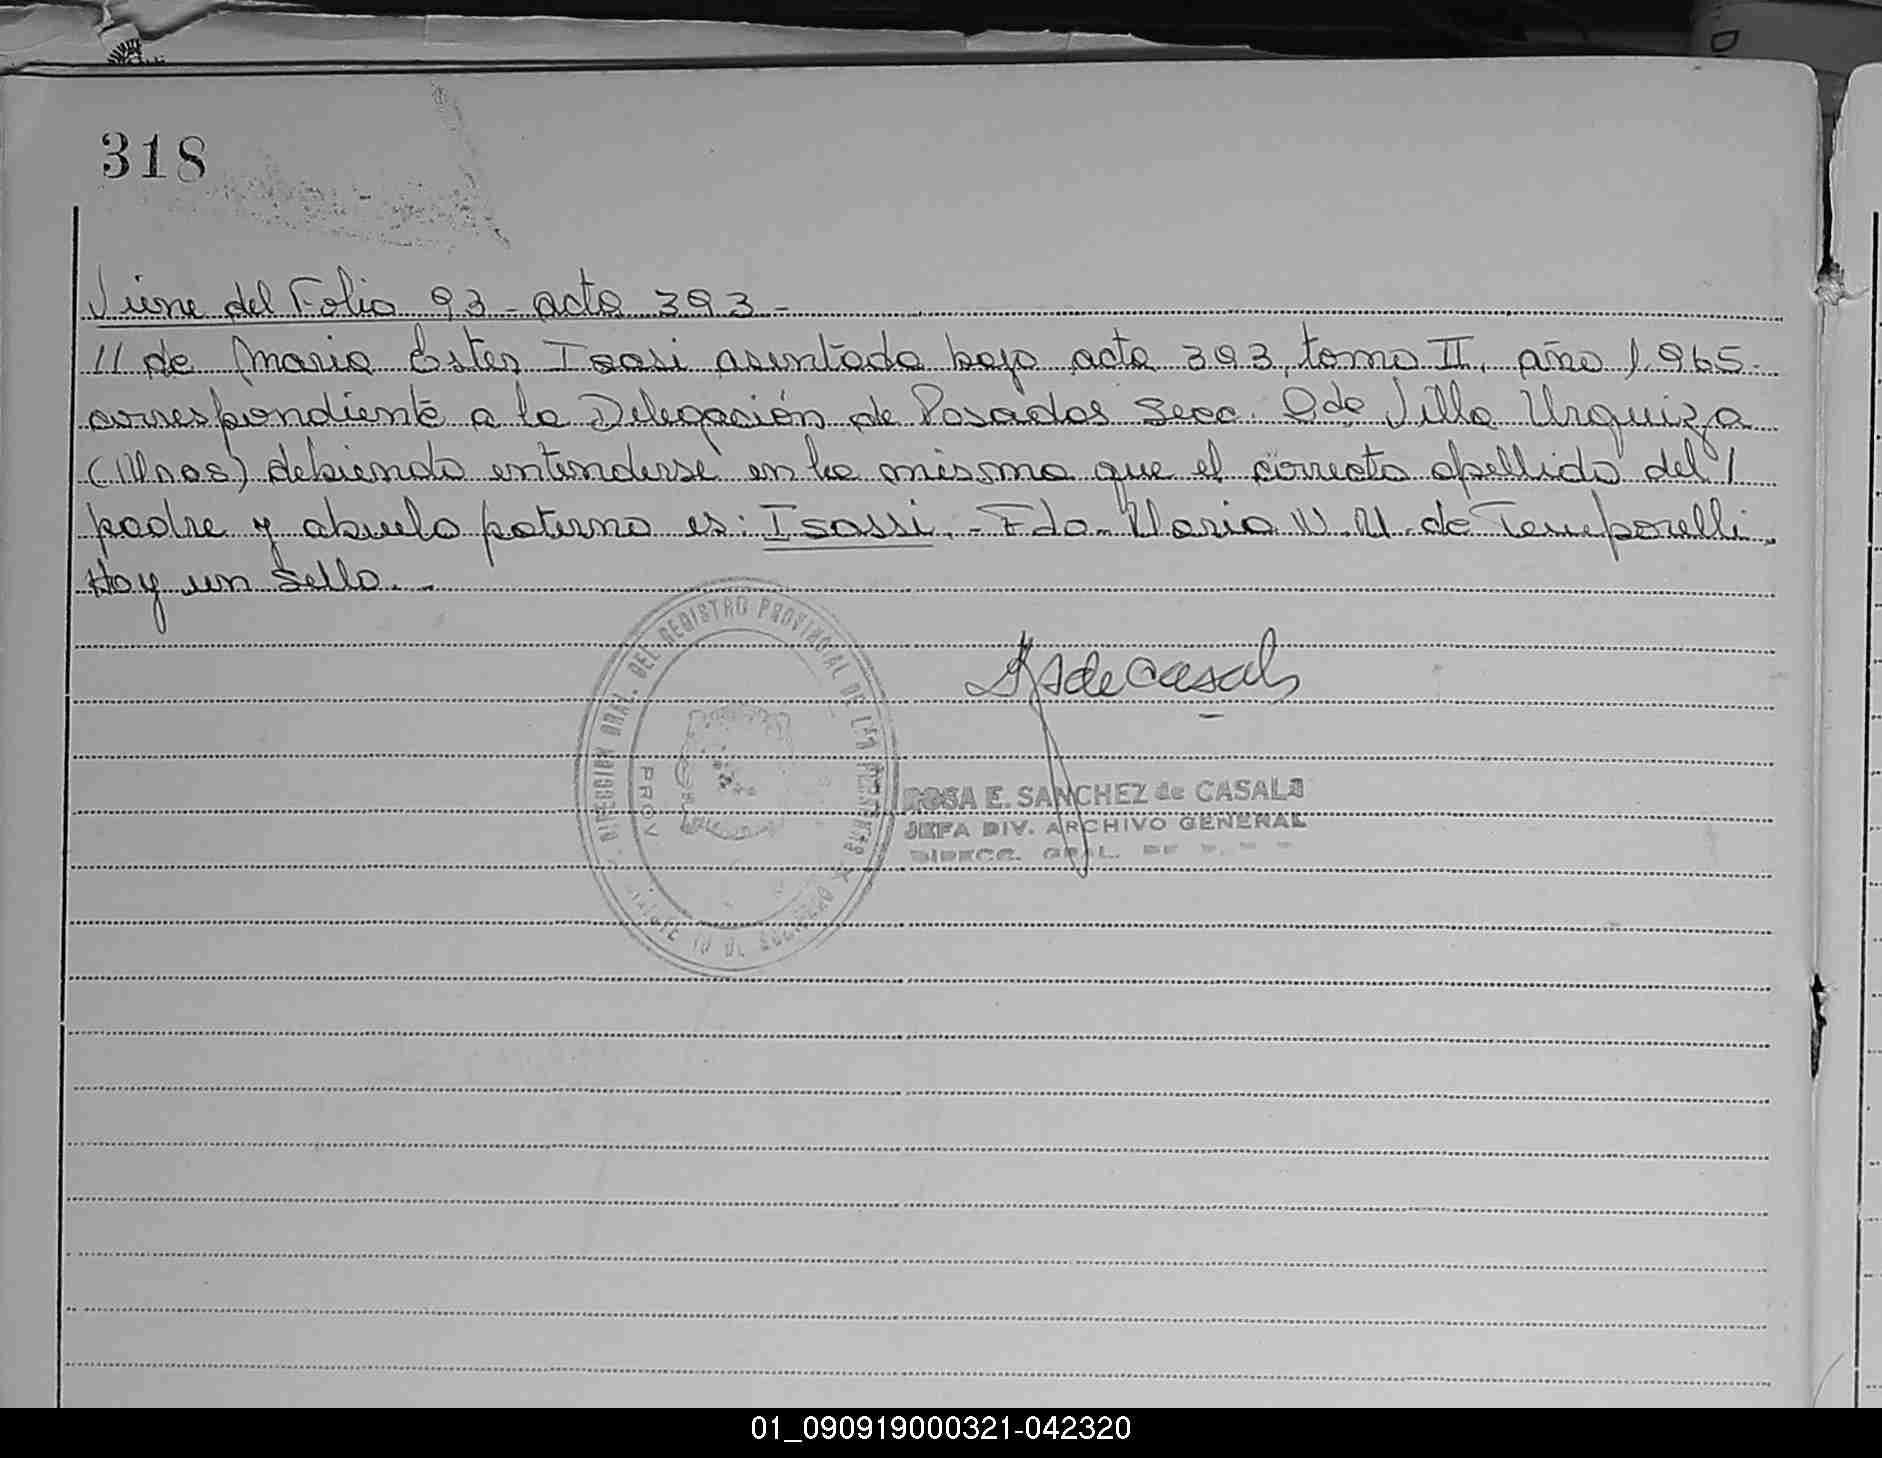 318
Viene del Folio 93 - acta 393 -
11 de Maria Ester Isasi asentada bajo acta 393, tomo II, año 1.965.
correspondiente a la Delegación de Posadas Secc. 2da Villa Urquiza
(Mnes) debiendo entenderse en la misma que el correcto apellido del
padre y abuelo paterno es: Isassi. - Fdo. Maria N. M. de Temporelli.
Hay un sello. -
DIRECCION GRAL. DEL REGISTRO PROVINCIAL DE LAS PERSONAS
PROV
S de Casals
ROSA E. SANCHEZ de CASALS
JEFA DIV. ARCHIVO GENERAL
DIRECC. GRAL.
01_090919000321-042320